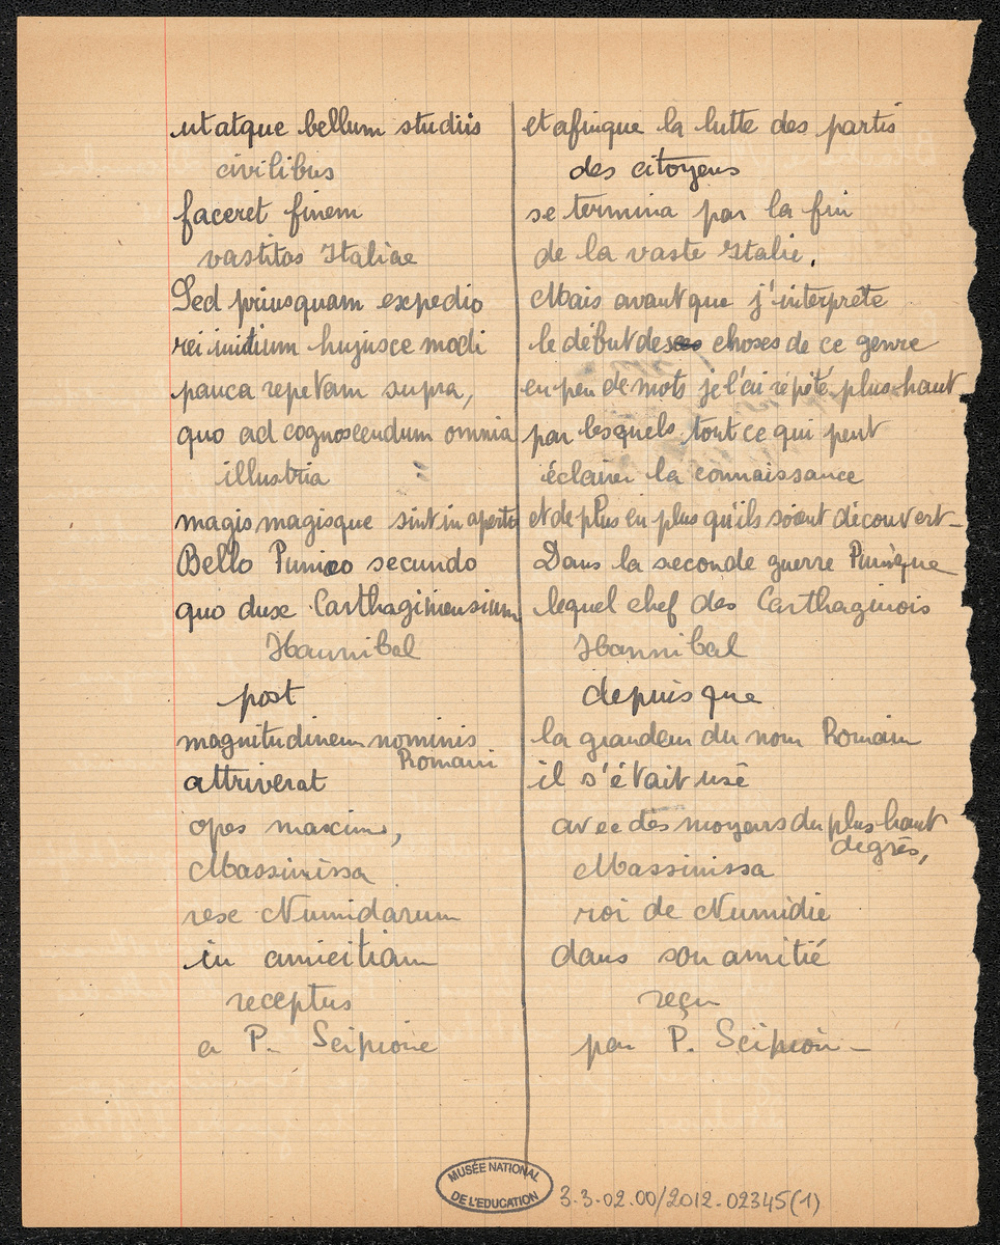 ut atque bellum studiis
civilibus
faceret finem
vastitas Italiae
Sed priusquam expedio
rei initium hujusce modi
pauca repetam supra,
quo ad cognoscendum omnia
illustria
magis magisque sint in aperto
Bello Punico secundo
quo dux Carthaginiensium
Hannibal
post
magnitudinem nominis
Romani
attriverat
opes maxime,
Massinissa
rex Numidarum
in amicitiam
receptus
a P. Scipione
et afin que la lutte des partis
des citoyens
se termina par la fin
de la vaste Italie.
Mais avant que j'interprète
le début des choses de ce genre
en peu de mots je l'ai répété plus haut
par lesquels tout ce qui peut
éclairer la connaissance
et de plus en plus qu'ils soient découvert
Dans la seconde guerre Punique
lequel chef des Carthaginois
Hannibal
depuis que
la grandeur du nom Romain
il s'était usé
avec des moyens du plus haut
degrès,
Massinissa
roi de Numidie
dans son amitié
reçu
par P. Scipion
MUSÉE NATIONAL
DE L'EDUCATION
3.3.02.00/2012.02345(1)